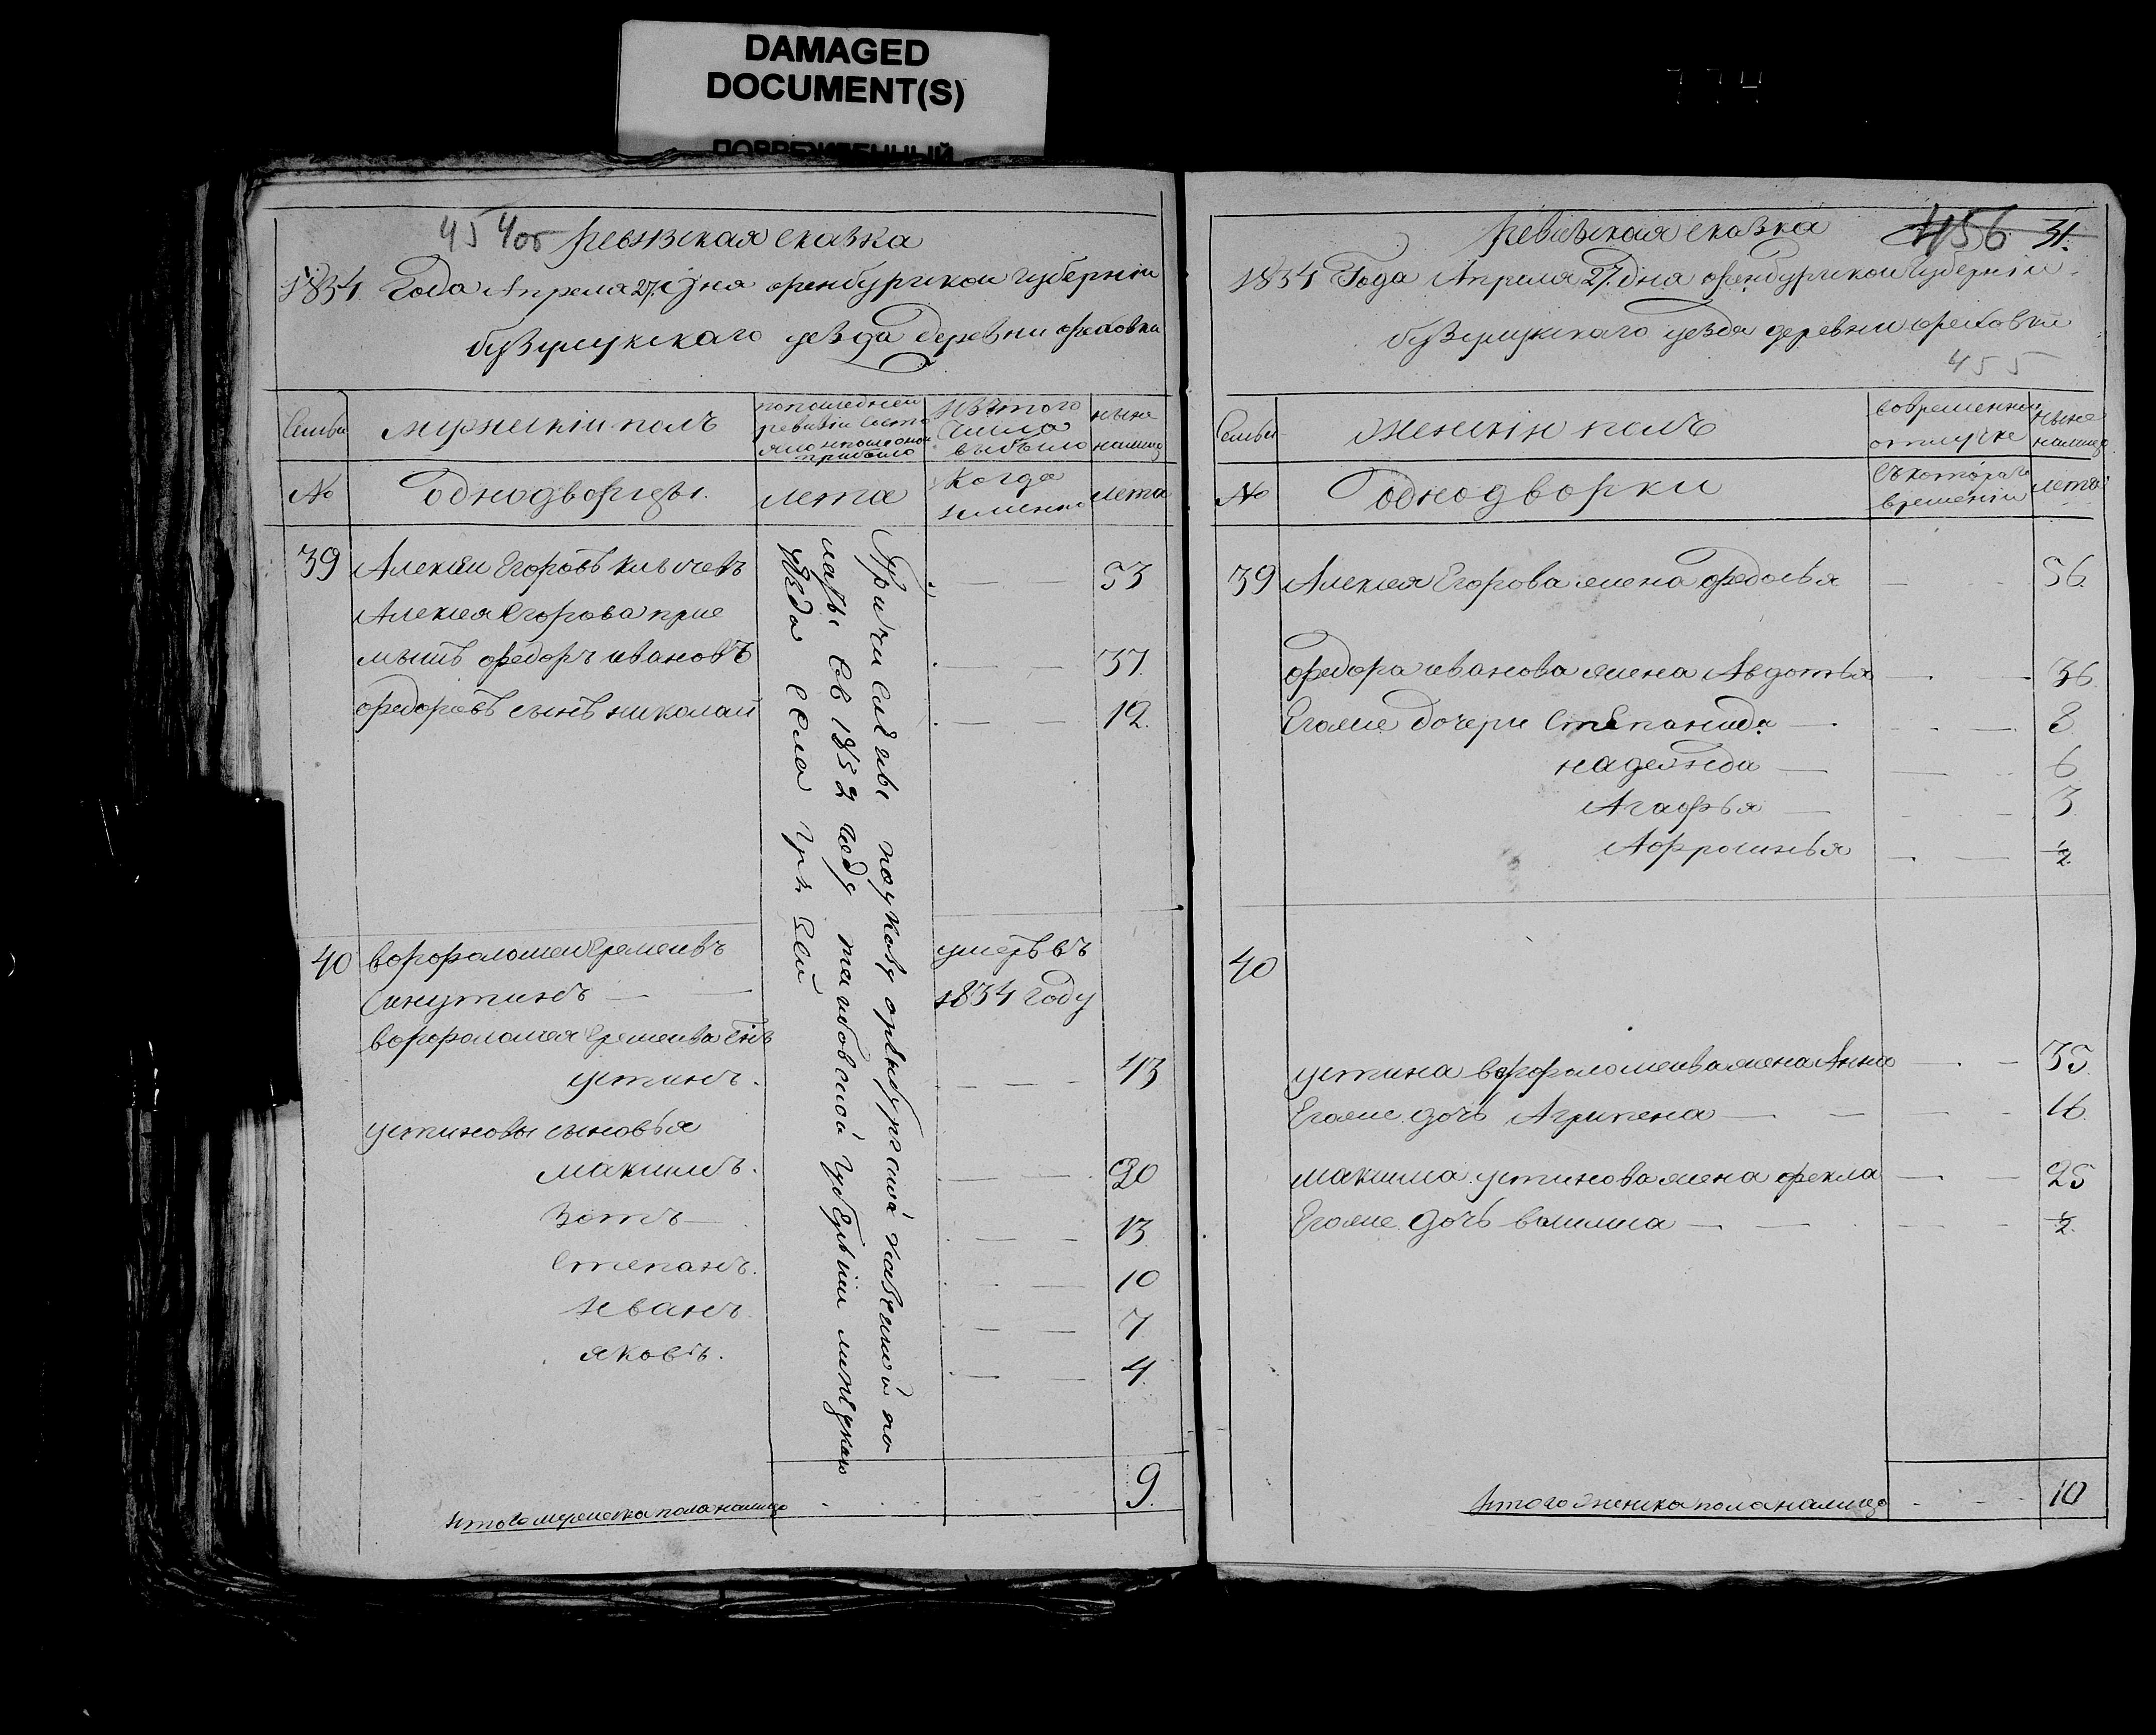 DAMAGED
DOCUMENT(S)
ПОВРЕЖДЕННЫЙ
454об ревизская сказка
1834 Года Апреля 27. Дня оренбургской губерніи
бузулукскаго уезда деревни ореховки
Семьи
мужскій полъ
ревизіи
прибыло
изъ того
числа
выбыло
ныне
налицо
№
однодворцы.
лета
когда
именно
лета
39 Алексей Егоровъ
53
Алексея Егорова прие
мышъ федоръ ивановъ
37.
федоровъ сынъ николай
12.
40 ворфоломеи Еремеивъ
умеръ въ
1834 году
ворфоломея Еремеива снъ
устинъ.
43
устиновы сыновья
максимъ.
20
Зотъ
13
Степанъ.
10
Иванъ
7
яковъ.
4
Причисленные по указу оренбургской казенной по
латы въ 1832 году тамбовской губерніи липецкаго
уезда села
итого мужеска пола налицо
9.
ревизская сказка
456 31.
1834 Года Апреля 27. Дня оренбургской Губерніи
бузулукскаго уезда деревни ореховки
455
Семьи
Женскін полъ
во временной
отлучке
ныне
налицо
№
однодворки
съ котораго
времени
лета
39 Алексея Егорова жена федосья
56.
федора иванова жена Авдотья
36
Егоже дочери Степанида
8
надежда
6
Агафья
3
Афросинья
1/2
40
устина ворфоломеива жена Анна
35.
Егоже дочь Агрипена
16.
максима устинова жена фекла
25
Егоже дочь
1/2.
итого женска пола налицо
10